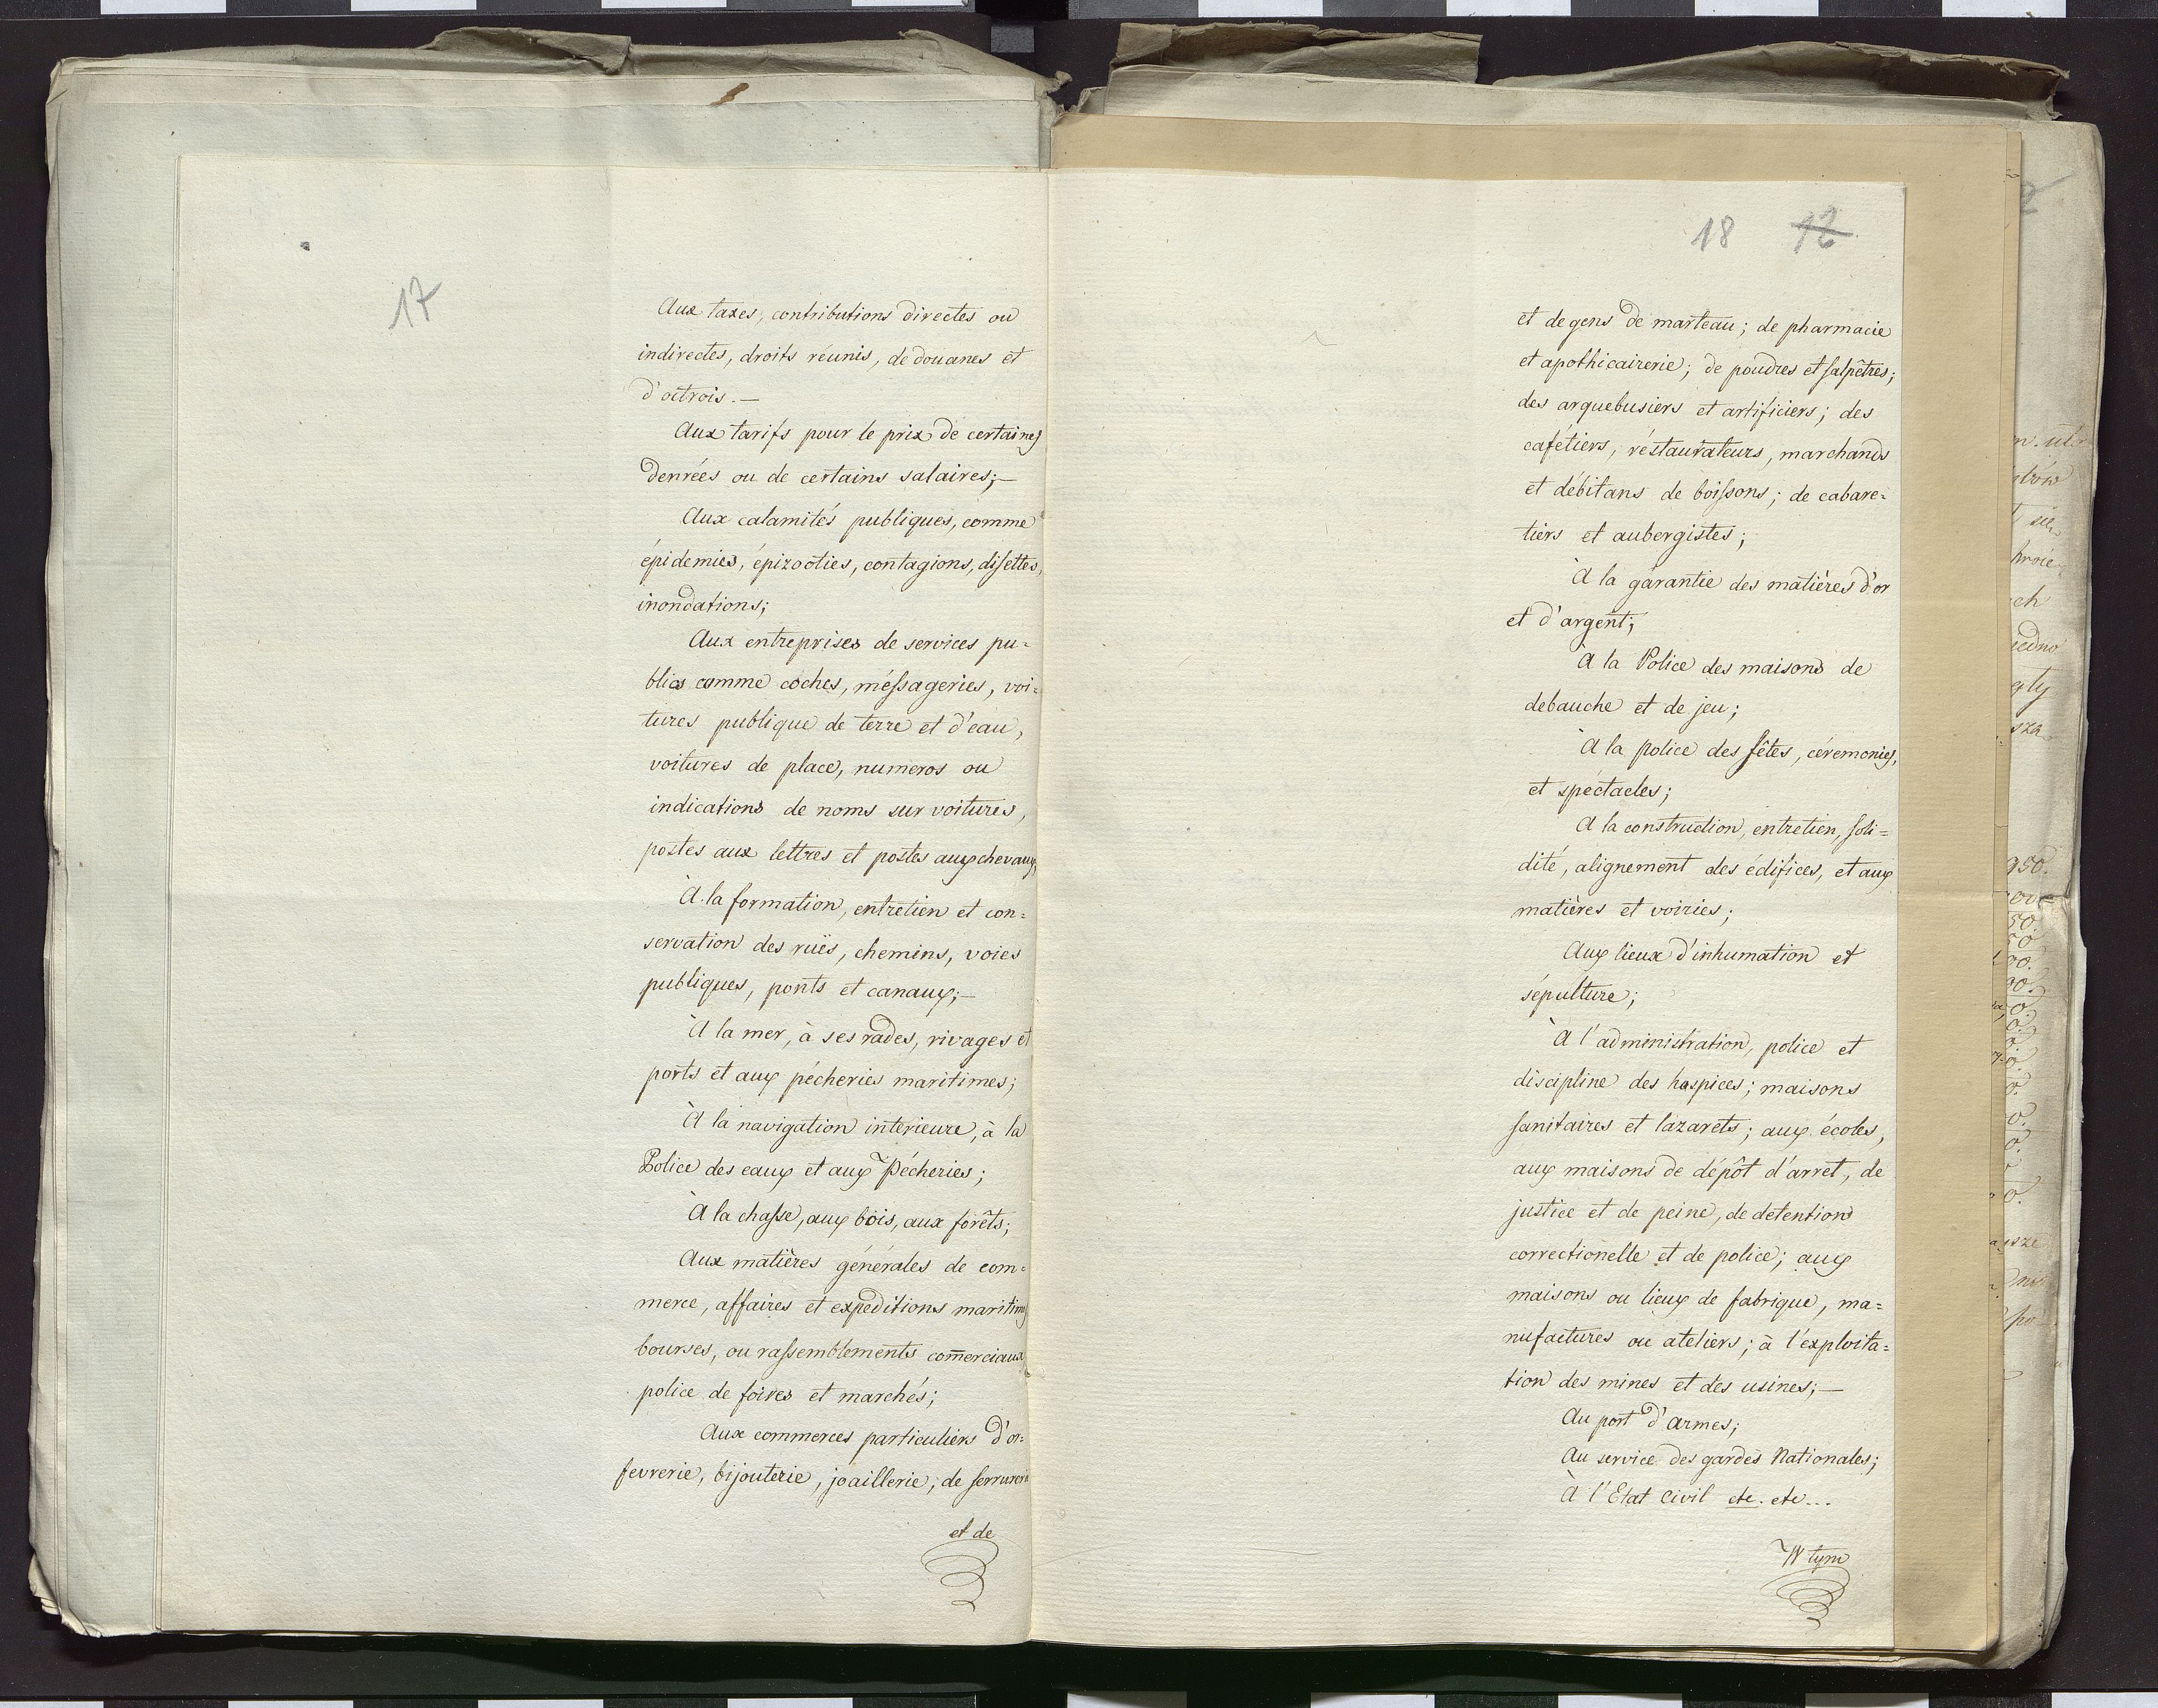 17
Aux taxes, contributions directes ou
indirectes, droits réunis, de douanes et
d'octrois.—
Aux tarifs pour le prix de certaines
denrées ou de certains salaires;—
Aux calamités publiques, comme
épidemies, épizooties, contagions, disettes,
inondations;
Aux entreprises de services pu=
blics comme coches, méssageries, voi=
tures publique de terre et d'eau,
voitures de place, numeros ou
indications de noms sur voitures,
postes aux lettres et postes aux chevaux,
À la formation, entretien et con=
servation des ruës, chemins, voies
publiques, ponts et canaux;—
À la mer, à ses rades, rivages et
ports et aux pécheries maritimes;
À la navigation interieure, à la
Police des eaux et aux Pécheries;
À la chasse, aux bois, aux forêts;
Aux matières générales de com=
merce, affaires et expeditions maritimes
bourses, ou rassemblements com̄erciaux
police de foires et marchés;
Aux commerces particuliers d'or=
fevrerie, bijouterie, joaillerie; de serrurerie
et de
18 12
et de gens de marteau; de pharmacie
et apothicairerie; de poudres et salpêtres;
des arquebusiers et artificiers; des
cafétiers, réstaurateurs, marchands
et débitans de boissons; de cabare=
tiers et aubergistes;
À la garantie des matières d'or
et d'argent;
À la Police des maisons de
debauche et de jeu;
À la police des fêtes, céremonies,
et spéctacles;
A la construction, entretien, soli=
dité, alignement des édifices, et aux
matières et voiries;
Aux lieux d'inhumation et
sépulture;
À l'administration, police et
discipline des hospices; maisons
sanitaires et lazarets; aux écoles,
aux maisons de dépôt d'arret, de
justice et de peine, de detention
correctionelle et de police; aux
maisons ou lieux de fabrique, ma=
nufactures ou ateliers; à l'exploita=
tion des mines et des usines;—
Au port d'armes;
Au service des gardes Nationales;
À l'Etat civil etc. etc...
W tym